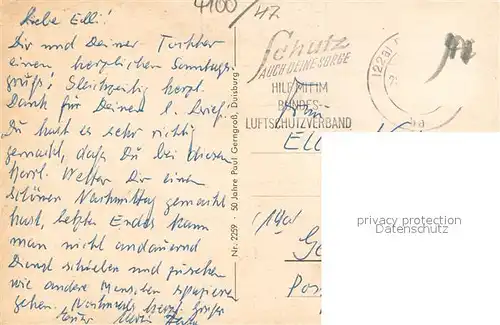 4100/47
Liebe Elli!
Dir und Deiner Tochter
einen herzlichen Sonntags-
gruß! Gleichzeitig herzl.
Dank für Deinen l. Brief.
Du hast es sehr richtig
gemacht, daß Du bei diesem
herrl. Wetter Dir einen
schönen Nachmittag gemacht
hast, letzten Endes kann
man nicht andauernd
Dienst schieben und zusehen
wie andere Menschen spazieren
gehen. Nochmals herzl. Grüße
Nr. 2259 · 50 Jahre Paul Gerngroß, Duisburg
Schutz
AUCH DEINE SORGE
HILF MIT IM
BUNDES-
LUFTSCHUTZVERBAND
(22a)
privacy protection
Datenschutz